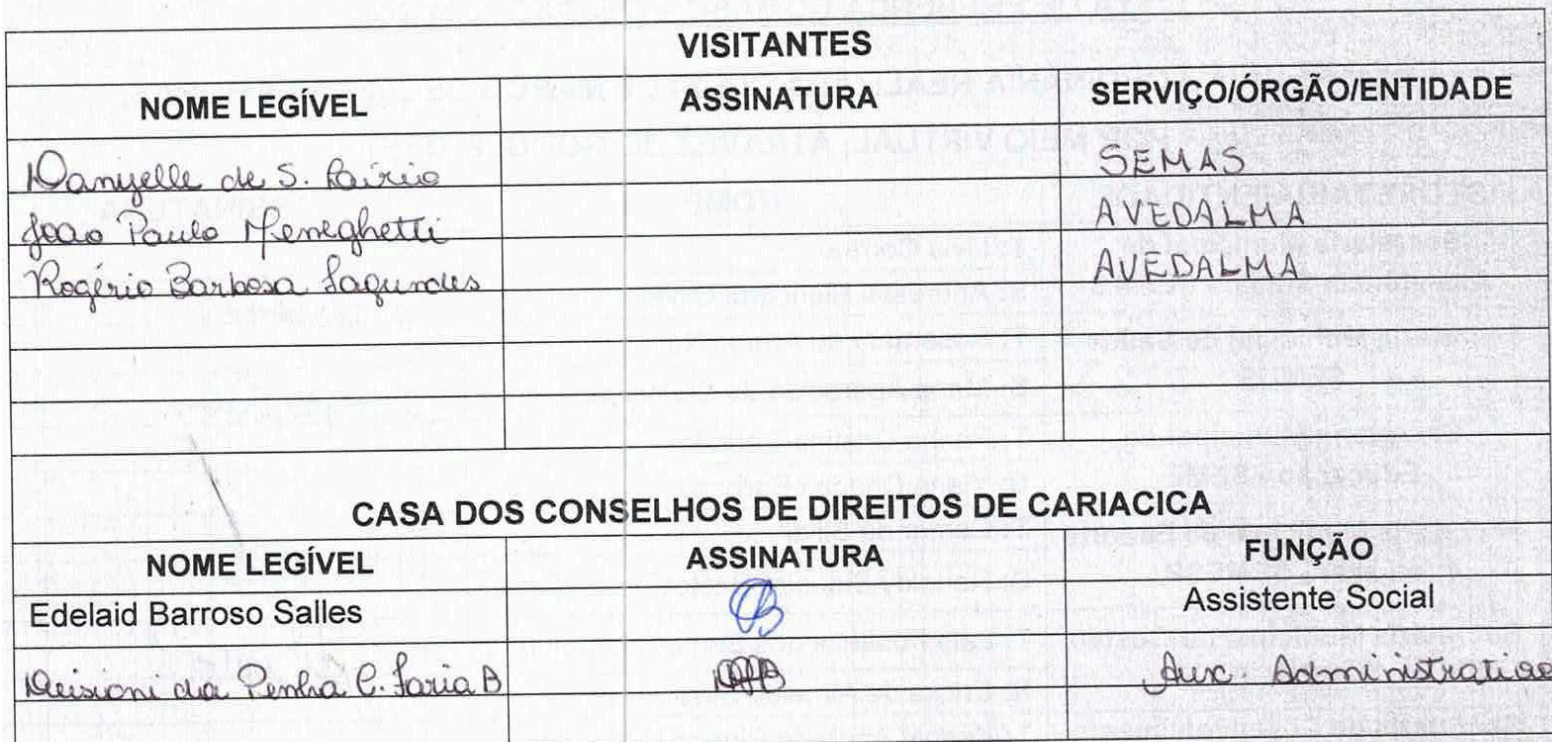 VISITANTES
NOME LEGÍVEL ASSINATURA SERVIÇO/ÓRGÃO/ENTIDADE
Danyelle de S. SEMAS
João Paulo Meneghetti AVEDALMA
Rogério Barbosa Fagundes AVEDALMA
CASA DOS CONSELHOS DE DIREITOS DE CARIACICA
NOME LEGÍVEL ASSINATURA FUNÇÃO
Edelaid Barroso Salles Assistente Social
da Penha C. Faria B Aux. Administrativo